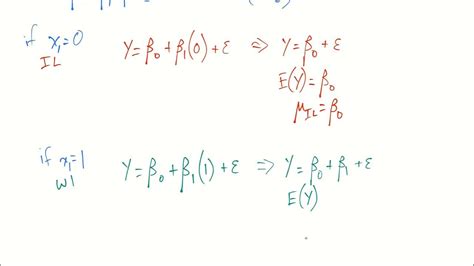 if x₁=0 Y=β₀+β₁(0)+ε ⇒ Y=β₀+ε
IL E(Y)=β₀
μ_IL=β₀
if x₁=1 Y=β₀+β₁(1)+ε ⇒ Y=β₀+β₁+ε
WI E(Y)